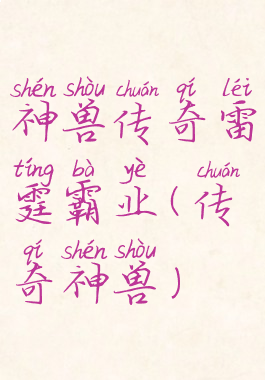 shén shòu chuán qí léi
神兽传奇雷
tíng bà yè chuán
霆霸业(传
qí shén shòu
奇神兽)